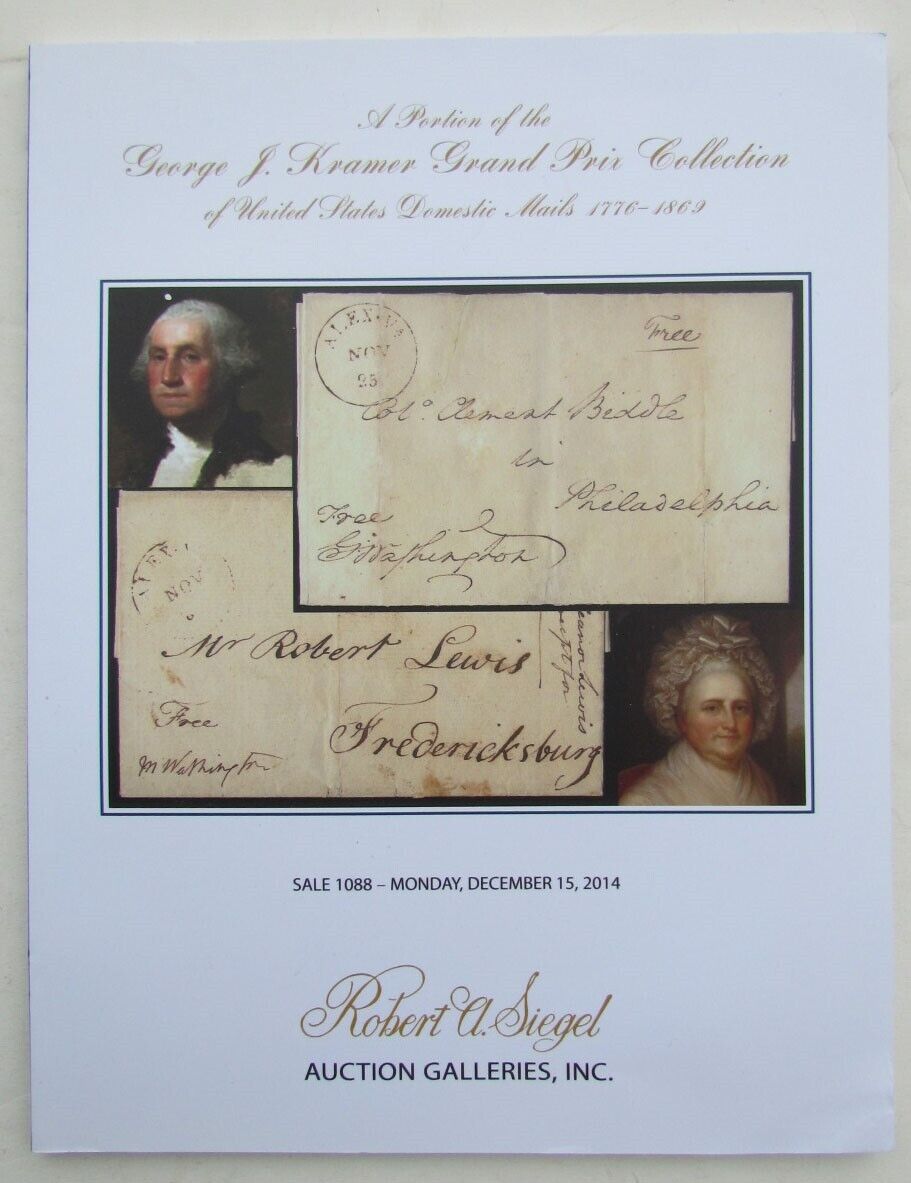 A Portion of the
George J. Kramer Grand Prix Collection
of United States Domestic Mails 1776–1869
ALEX. Va
NOV
25
Free
Colo. Clement Biddle
in
Philadelphia
Free
G Washington
ALEX.
NOV
Mr Robert Lewis
Fredericksburg
Free
M Washington
Lewis
for
SALE 1088 – MONDAY, DECEMBER 15, 2014
Robert A. Siegel
AUCTION GALLERIES, INC.